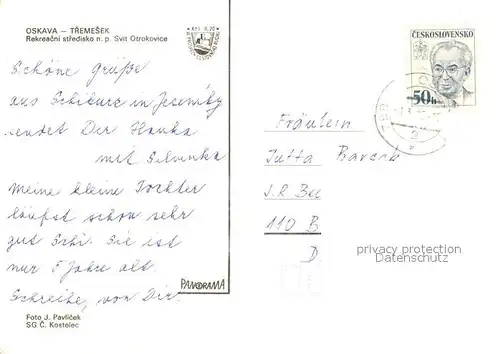 OSKAVA — TŘEMEŠEK
Rekreační středisko n. p. Svit Otrokovice
Schöne grüße
aus Schikurs in Jeseníky
sendet Dir Hanka
mit Silvinka
Meine kleine Tochter
läufst schon sehr
gut Schi. Sie ist
nur 5 Jahre alt.
Schreibe, von Dir.
PANORAMA
Foto J. Pavlíček
SG Č. Kostelec
ČESKOSLOVENSKO
50h
Fräulein
Jutta
J.R.
110 B
D.
privacy protection
Datenschutz